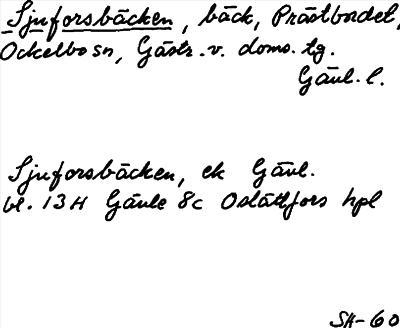 Sjuforsbäcken, bäck, Prästbordet,
Ockelbo sn, Gästr.v. doms. tg.
Gävl. l.
Sjuforsbäcken, ek Gävl.
bl. 13H Gävle 8c Oslättfors hpl
SH-60